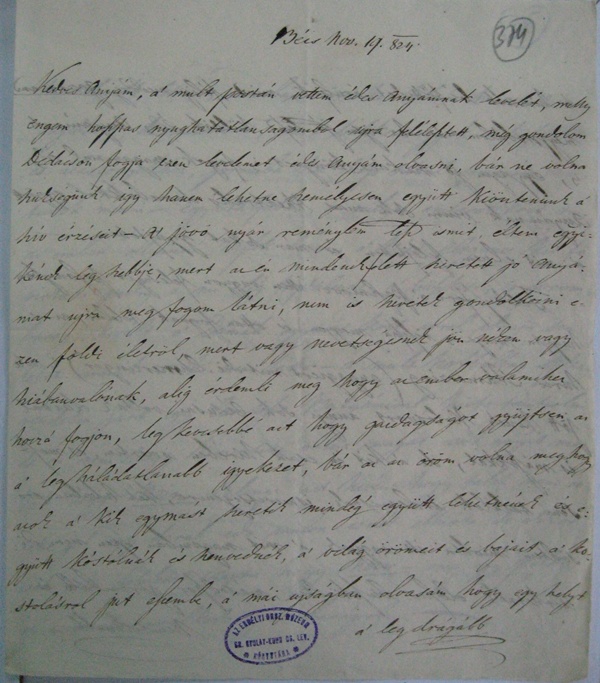 Bécs Nov. 19. 824.
374
Kedves Anyám, a' mult postán vettem édes Anyámnak levelét, melly
engem hoppas nyughatatlanságomból ujra felélesztett, meg gondolom
Dédácson fogja ezen levelemet édes Anyám olvasni, bár ne volna
szükségünk igy hanem lehetne személyesen együtt kiöntenünk a'
hív érzéseit – A' jövő nyár reménylem lesz ismit éltem egyi-
kének leg szebbje, mert az én mindenek felett szeretett jó Anyá-
mat ujra meg fogom látni, nem is szeretek gondolkozni e-
zen földi életről, mert vagy nevetségesnek jön nézem vagy
hiábanvalónak, alig érdemli meg hogy az ember valamihez
hozzá fogjon, leg kevesebbé azt hogy gazdagságot gyüjtsön, az
a' leg háládatlanabb igyekezet, bár az az öröm volna meg hogy
azok a' kik egymást szeretik mindég együtt lehetnének és e-
gyütt kóstolnák és szenvednék, a' világ örömeit és bajait, a' kó-
stolásrol jut eszembe, a' mái ujságban olvasám hogy egy helyt
a' leg drágább
AZ ERDÉLYI ORSZ. MÚZEUM
GR. GYULAY-KUUN CS. LEV.